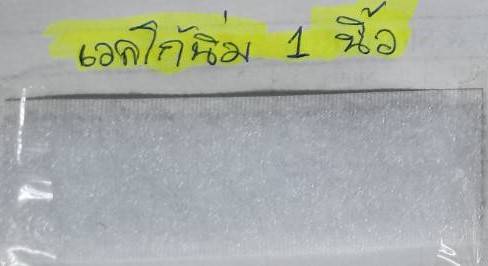 เวคโก้นิ่ม 1 นิ้ว